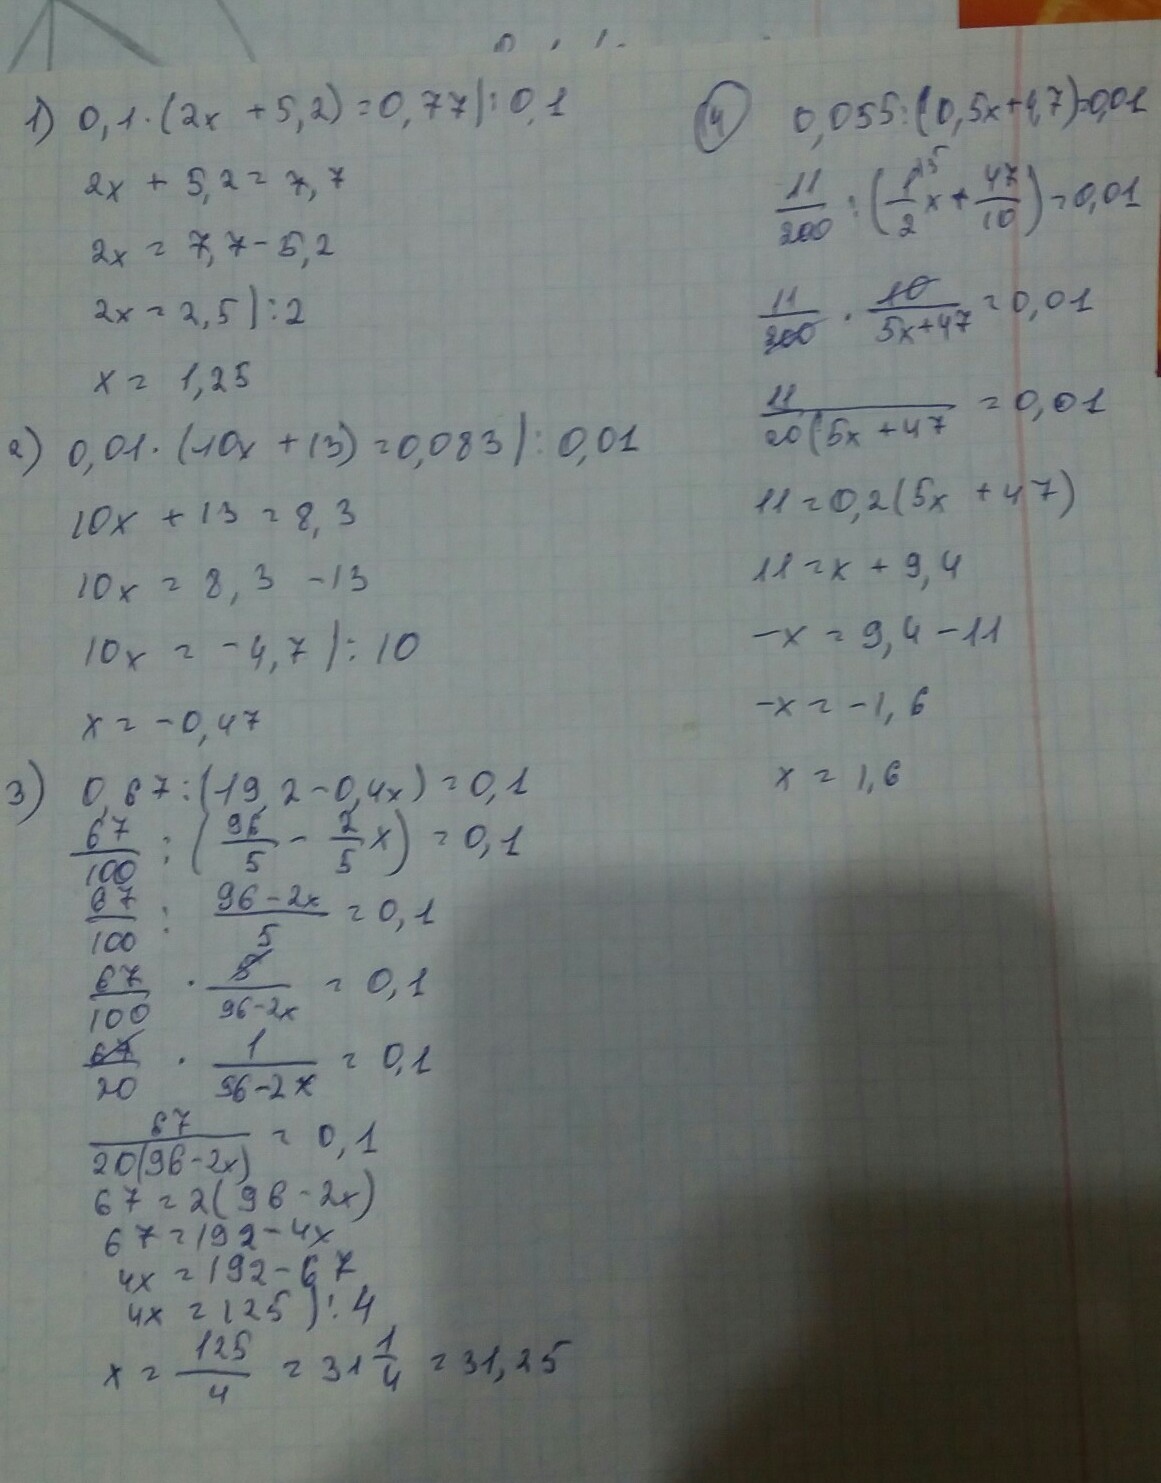 1) 0,1·(2x + 5,2) = 0,77 | : 0,1
2x + 5,2 = 7,7
2x = 7,7 - 5,2
2x = 2,5 | : 2
x = 1,25
2) 0,01·(10x + 13) = 0,083 | : 0,01
10x + 13 = 8,3
10x = 8,3 - 13
10x = -4,7 | : 10
x = -0,47
3) 0,67 : (19,2 - 0,4x) = 0,1
67/100 : (96/5 - 2/5 x) = 0,1
67/100 : (96-2x)/5 = 0,1
67/100 · 5/(96-2x) = 0,1
67/20 · 1/(96-2x) = 0,1
67/(20(96-2x)) = 0,1
67 = 2(96 - 2x)
67 = 192 - 4x
4x = 192 - 67
4x = 125 ) : 4
x = 125/4 = 31 1/4 = 31,25
4 0,055 : (0,5x + 4,7) = 0,01
11/200 : (1/2 x + 47/10) = 0,01
11/200 · 10/(5x+47) = 0,01
11/20(5x + 47 = 0,01
11 = 0,2(5x + 47)
11 = x + 9,4
-x = 9,4 - 11
-x = -1,6
x = 1,6